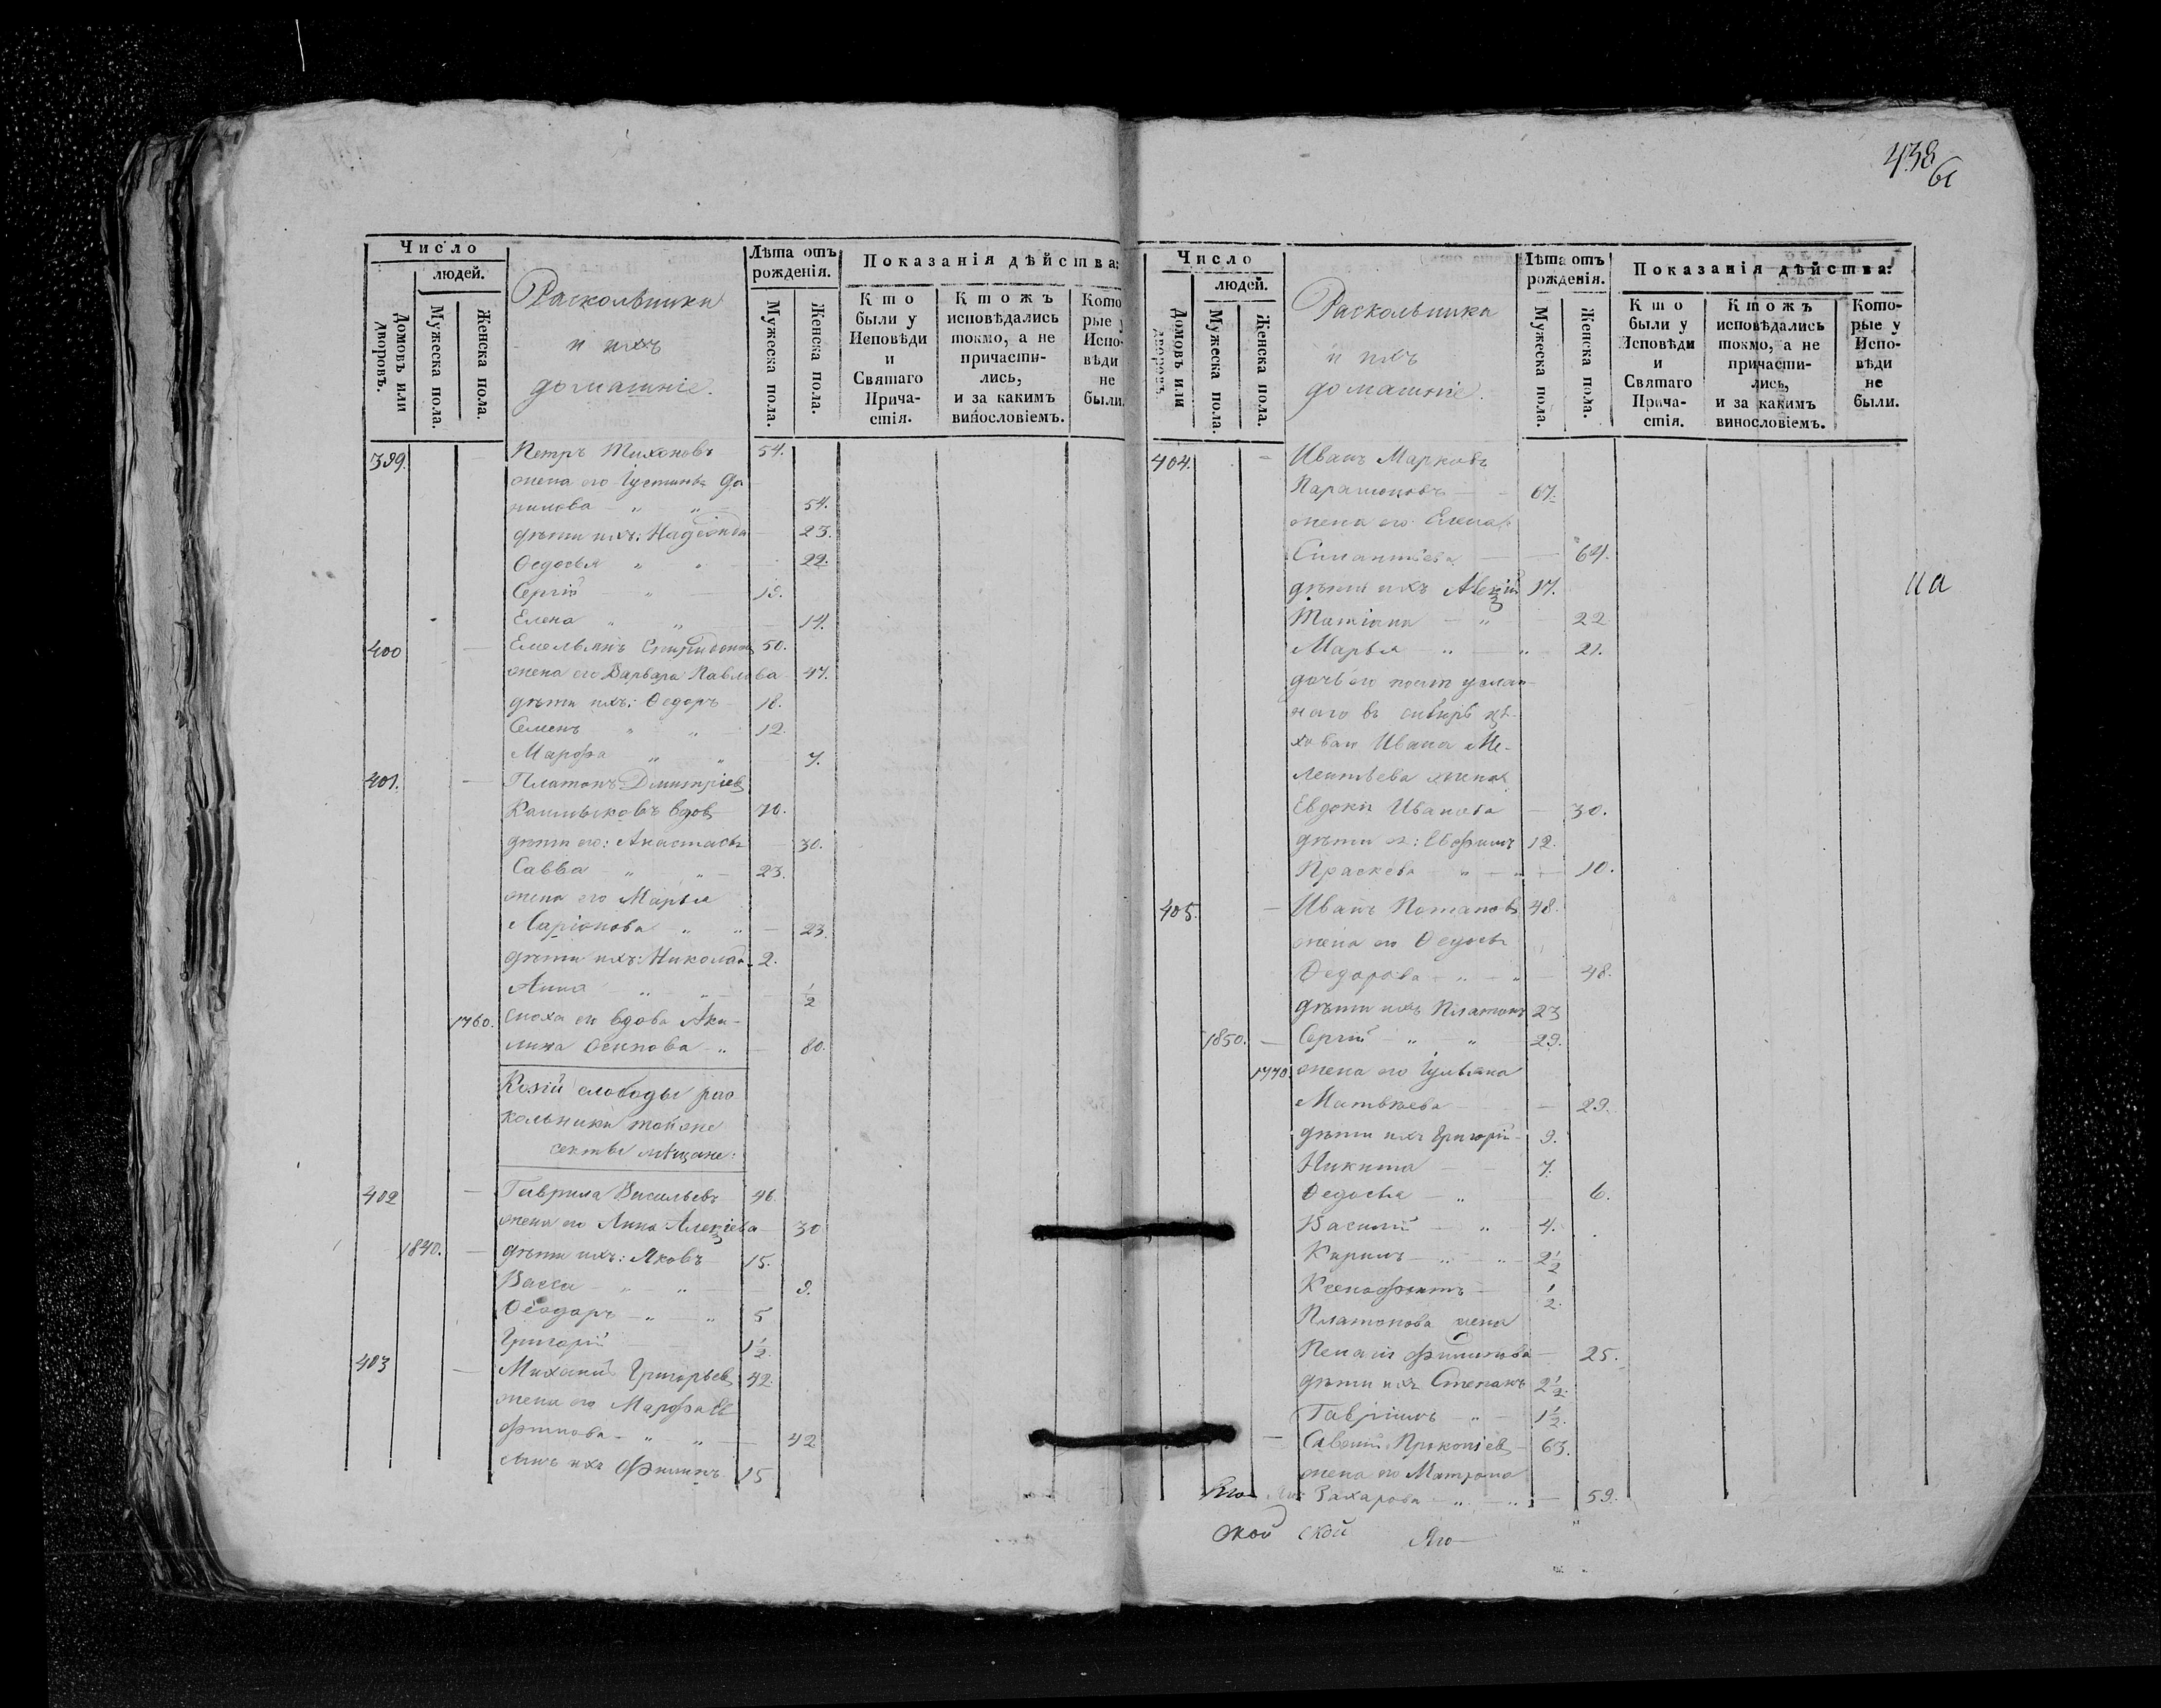 438
61
Число
людей.
Домовъ или дворовъ.
Мужеска пола.
Женска пола.
Раскольники
и ихъ
домашніе.
Лѣта отъ рожденія.
Мужеска пола.
Женска пола.
Показанія дѣйства:
Кто были у Исповѣди и Святаго Прича-стія.
Ктожъ исповѣдались токмо, а не причасти-лись, и за какимъ винословіемъ.
Кото рые у Испо-вѣди не были.
399. Петръ Тихоновъ 54.
жена его Іустинья Да
нилова „ „ 54.
дѣти ихъ: Надежда 23.
Ѳедосья „ „ 22.
Сергій „ 19.
Елена „ „ 14.
400 Емельянъ Спиридоновъ 50.
жена его Варвара Павлова 47.
дѣти ихъ: Ѳедоръ 18.
Семенъ „ „ 12.
Марфа „ „ 7.
401. Платонъ Дмитріевъ
вдовъ 70.
дѣти его: Анастасья 30.
Савва „ „ 23.
жена его Марья
Ларіонова „ „ 23.
дѣти ихъ: Николай 2.
Анна „ „ 1/2
1760. сноха его вдова Аки-
лина Осипова „ 80.
Козій слободы рас
кольники тойже
секты мѣщане:
402 Гаврила Васильевъ 46.
жена его Анна Алекѣева 30
1840. дѣти ихъ: Яковъ 15.
Васса „ „ 9.
Ѳеодоръ „ „ 5
Григорій 1 1/2.
403 Михаилъ Григорьевъ 42.
жена его Марфа Е
фимова „ „ 42
сынъ ихъ Филипъ 15
Число
людей.
Домовъ или дворовъ.
Мужеска пола.
Женска пола.
Раскольники
и ихъ
домашніе.
Лѣта отъ рожденія.
Мужеска пола.
Женска пола.
Показанія дѣйства:
Кто были у Исповѣди и Святаго Прича-стія.
Ктожъ исповѣдались токмо, а не причасти-лись, и за какимъ винословіемъ.
Кото-рые у Испо-вѣди не были.
404. Иванъ Марковъ
Парамоновъ 67.
жена его Елена
64.
дѣти ихъ Алекѣй 17.
Татіана „ 22
Марья „ „ 21.
дочь его услан-
наго въ сибирь
Ивана Ме-
лентьева жена
Евдокія Иванова 30.
дѣти ея: Ефимъ 12.
Праскева „ „ 10.
405. Иванъ Потаповъ 48.
жена его Ѳедосья
Ѳедорова „ „ 48.
дѣти ихъ Платонъ 23
1850. Сергій „ „ 29.
1770 жена его Іульяна
Матвѣева 29.
дѣти ихъ Григорій 9.
Никита 7.
Ѳедосья „ 6.
Василій „ 4.
Кирилъ „ „ 2 1/2
Ксенофонтъ 1/2.
Платонова жена
Филипова 25.
дѣти ихъ Степанъ 2 1/2.
Гавріилъ „ 1 1/2.
Савелій Прокопіевъ 63.
жена его Матрона
Захарова „ „ 59.
ской